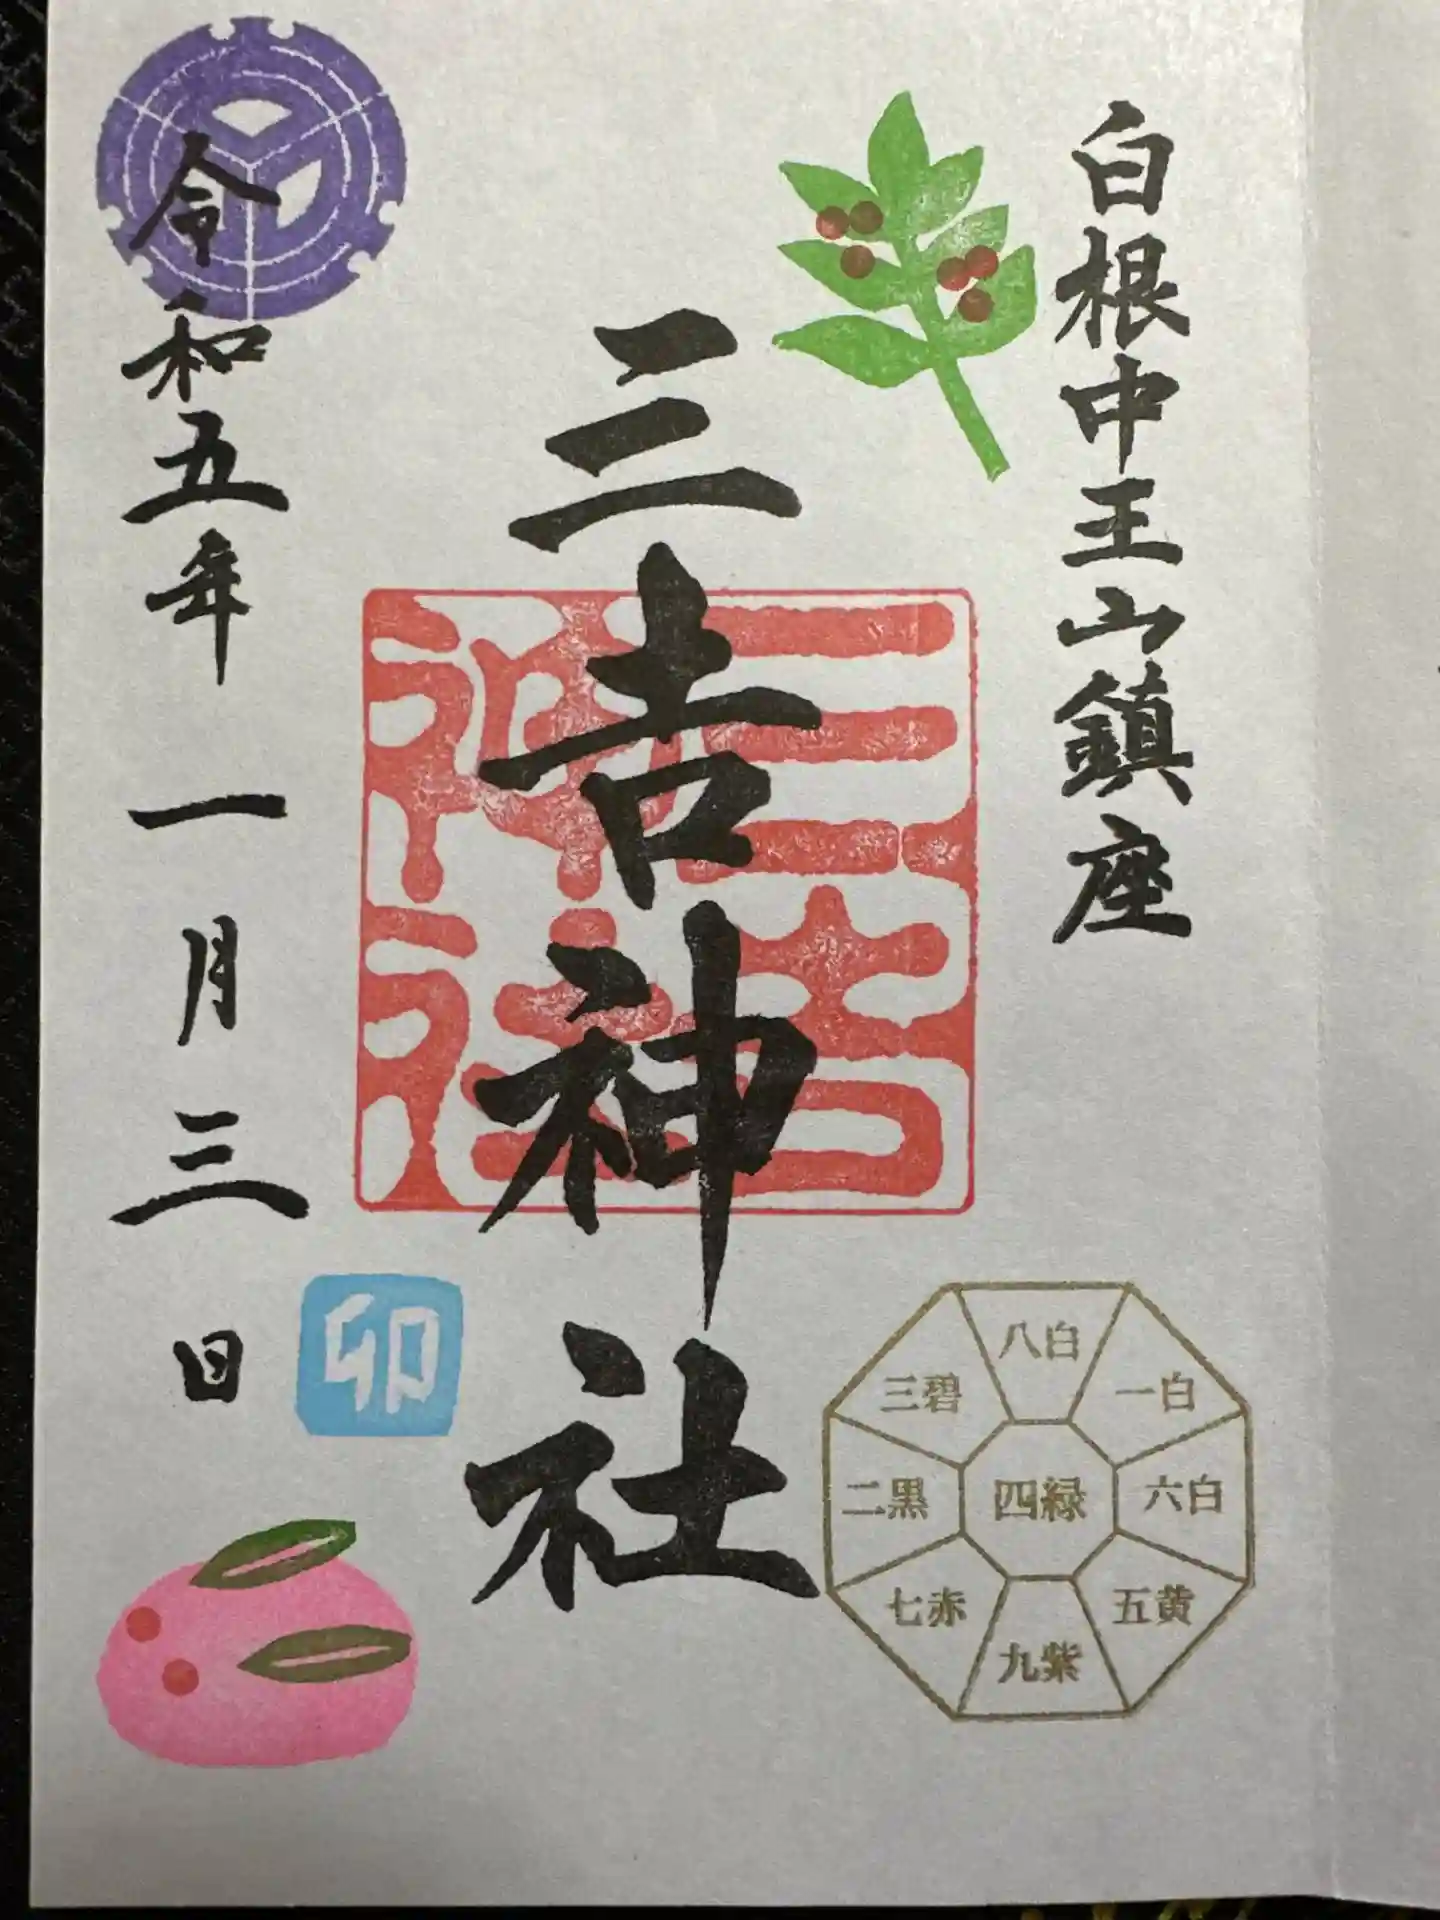 白根中王山鎮座
三吉神社
令和五年一月三日
三吉神社
卯
八白
三碧
一白
二黒
四緑
六白
七赤
五黄
九紫